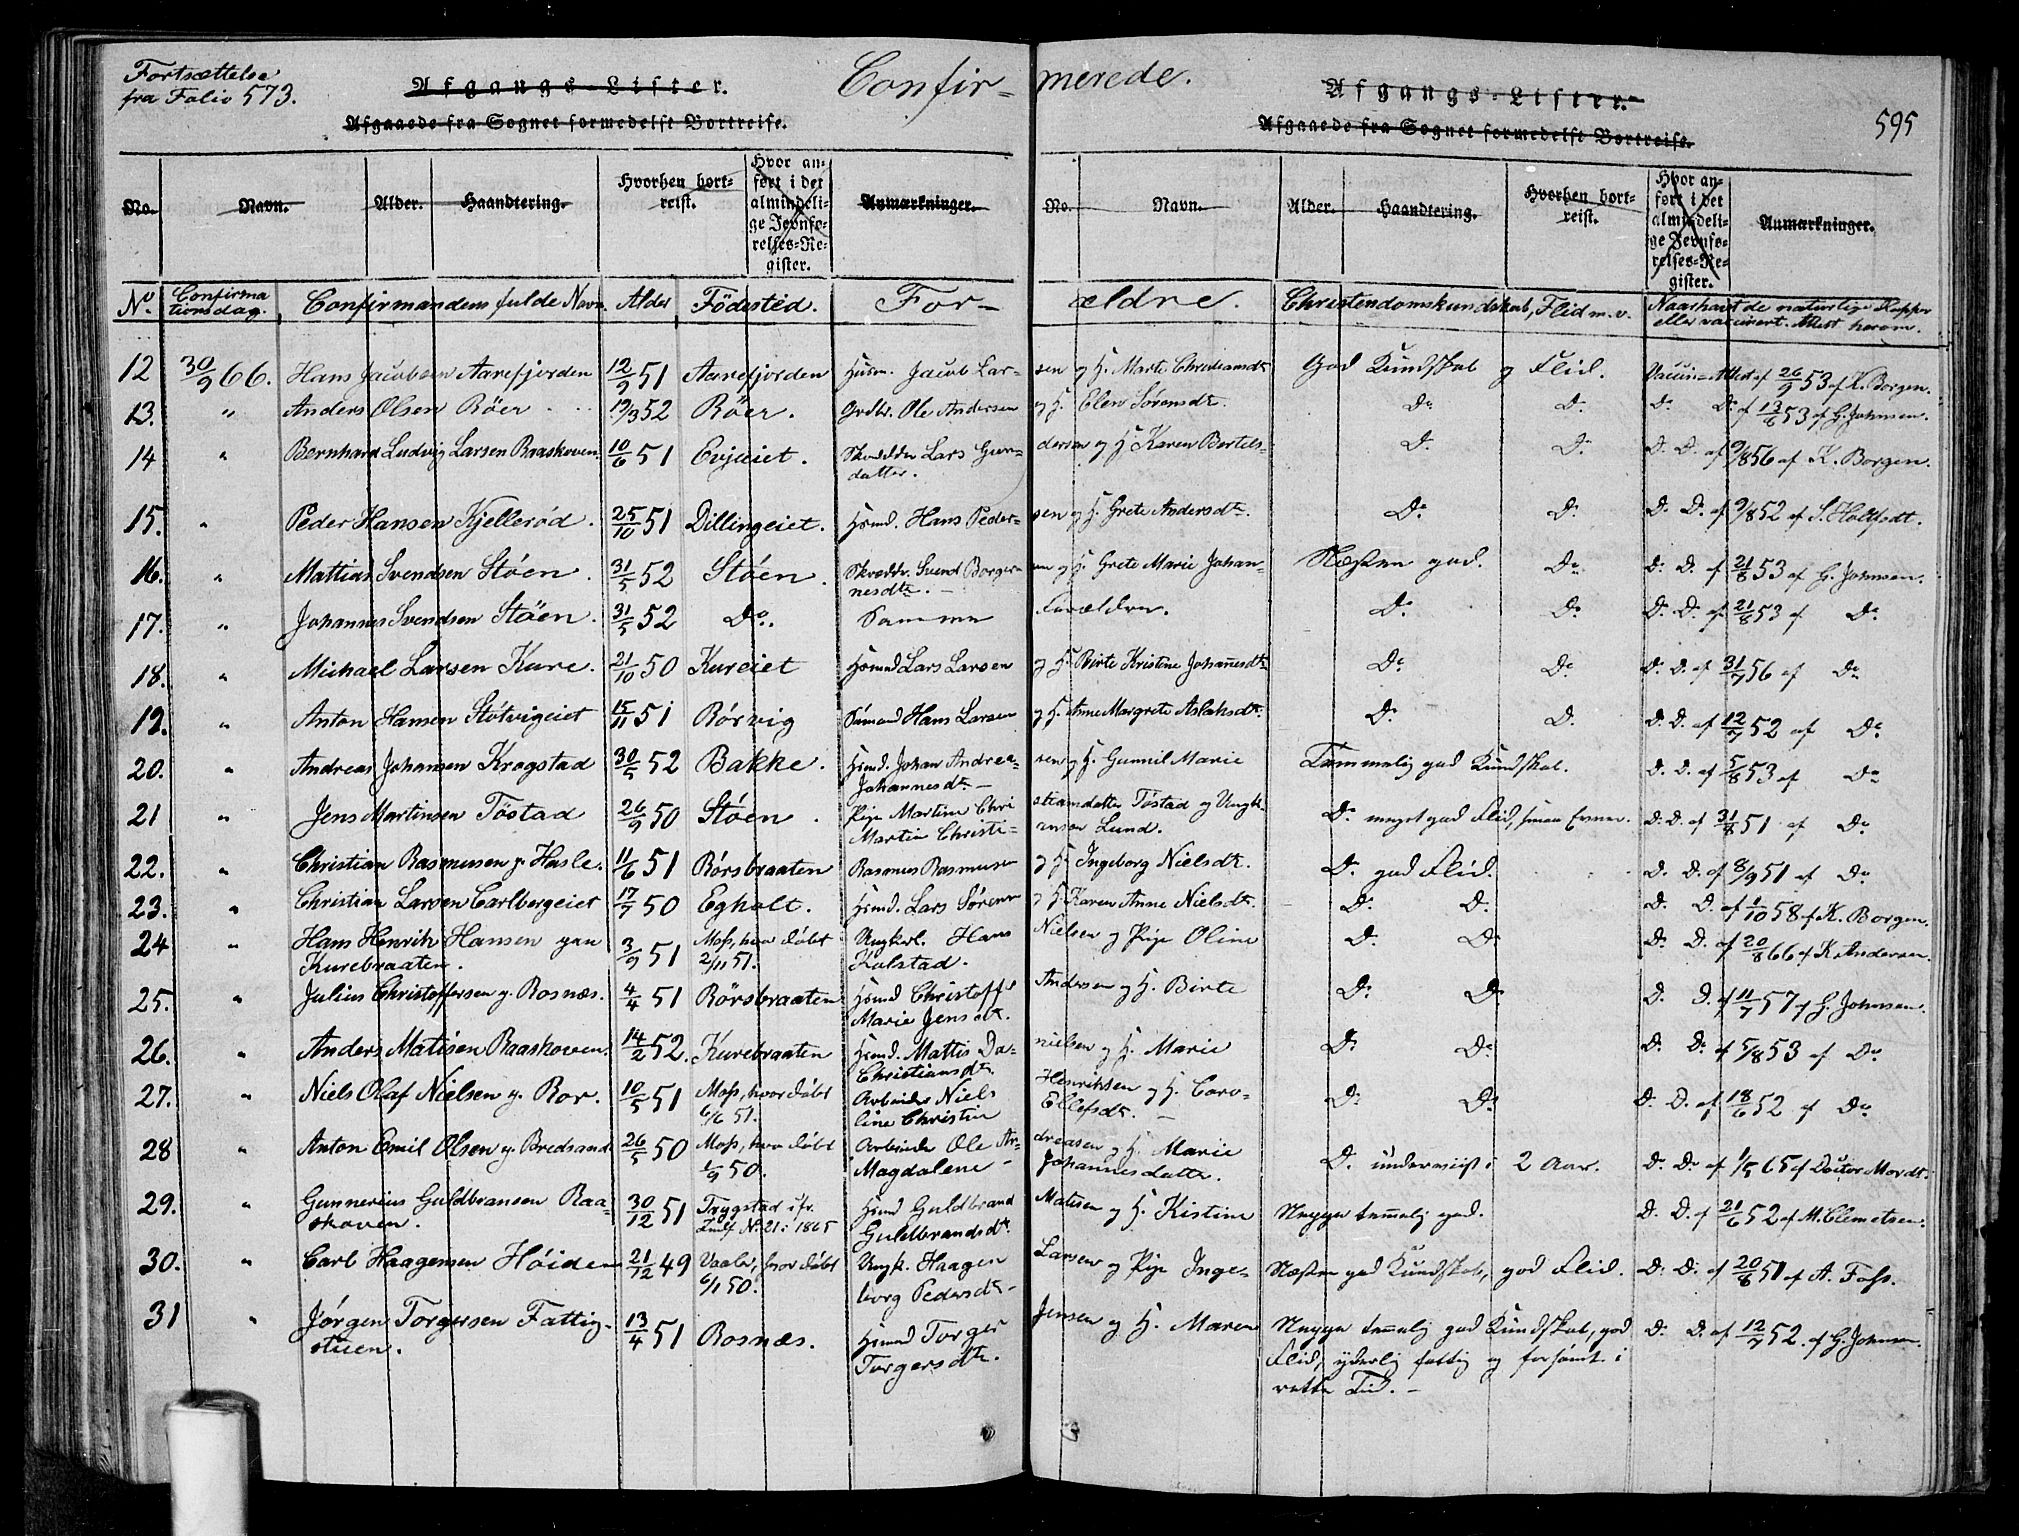 Fortsættelse
fra Folio 573.
Afgangs-Lister.
Afgaaede fra Sognet formedelst Bortreise.
Confir-
merede.
Afgangs-Lister.
Afgaaede fra Sognet formedelst Bortreise.
595
No. Navn. Alder. Haandtering. Hvorhen bort-reist. Hvor an-ført i det almindeli-ge Jevnfø-relses-Re-gister. Anmærkninger.
No. Navn. Alder. Haandtering. Hvorhen bort-reist. Hvor an-ført i det almindeli-ge Jevnfø-relses-Re-gister. Anmærkninger.
No. Confirmationsdag. Confirmandens fulde Navn. Alder Födested. For-ældre. Christendomskundskab, Flid m.v. Naar havt de naturlige Kopper eller vaccinert. Attest herom.
12 30/9 66. Hans Jacobsen Aarefjorden 12/9 51 Aarefjorden Husm. Jacob Lar-sen og H. Marte Christiansdt. God Kundskab og Flid. Vaccin-Attest af 26/9 53 af K. Borgen.
13. " Anders Olsen Röer. 19/3 52 Röer. Grdbr. Ole Andersen og H. Elen Sörensdt. Do Do Do Do af 13/6 53 af G. Johnsen.
14 " Bernhard Ludvig Larsen Raaskoven. 10/6 51 Evjeiet. Skrædder Lars Gun-dersen og H. Karen Bertels-
datter. Do Do Do Do af 9/8 56 af K. Borgen.
15. " Peder Hansen Kjelleröd. 25/10 51 Dillingeiet. Hsmd. Hans Peder-sen og H. Grete Andersdt. Do Do Do Do af 9/8 52 af S. Holtfsdt.
16. " Mattias Svendsen Stöen. 31/5 52 Stöen. Skræddr. Svend Borger-sen og H. Grete Marie Johan-
nesdt. Næsten god. Do Do Do af 21/8 53 af G. Johnsen.
17. " Johannes Svendsen Stöen. 31/5 52 Do. Samme Forældre. Do Do Do Do af 21/8 53 af Do
18. " Michael Larsen Kure. 21/10 50 Kureiet Hsmd Lars Larsen og H. Birte Kristine Johannesdt. Do Do Do Do af 31/7 56 af Do
19. " Anton Hansen Stötvigeiet 15/11 51 Rörvig Sömand Hans Larsen og H. Anne Margrete Aslaksdt. Do Do Do Do af 12/7 52 af Do
20. " Andreas Johansen Krogstad 30/5 52 Bakke. Hsmd. Johan Andrea-sen og H. Gunnil Marie
Johannesdt. Temmelig god Kundskab. Do Do af 5/8 53 af Do
21 " Jens Martinsen Töstad 26/9 50 Stöen. Pige Martine Chri-stiansdatter Töstad og Ungk.
Martin Christi-ansen Lund. Do meget god Flid, smaa Evner. Do Do af 31/8 51 af Do
22. " Christian Rasmusen g. Hasle. 11/6 51 Rörsbraaten Rasmus Rasmusen og H. Ingeborg Nielsdt. Do god Flid. Do Do af 8/9 51 af Do
23. " Christian Larsen Carlbergeiet 17/7 50 Egholt. Hsmd. Lars Sörensen og H. Karen Anne Nielsdt. Do Do Do Do af 1/10 58 af K. Borgen.
24 " Hans Henrik Hansen gaa
Kurebraaten. 3/9 51 Moss, hvor döbt
2/11 51. Ungkrl. Hans Nielsen og Pige Oline
Kolstad. Do Do Do Do af 20/8 66 af K. Andersen.
25. " Julius Christoffersen g. Rosnæs. 4/4 51 Rörsbraaten Hsmd Christoffr Andersen og H. Birte
Marie Jensdt. Do Do Do Do af 11/7 57 af G. Johnsen.
26. " Anders Matisen Raaskoven. 14/2 52. Kurebraaten Hsmd. Mattis Da-nielsen og H. Marie
Christiansdt. Do Do Do Do af 5/8 53 af Do
27. " Niels Olaf Nielsen g. Ror. 10/5 51 Moss, hvor döbt
6/6 51. Arbeider Niels Henriksen og H. Caro-
line Christin Ellefsdt. Do Do Do Do af 18/6 52 af Do
28 " Anton Emil Olsen g. Bredsand 26/5 50 Moss, hvor döbt
1/9 50. Arbeider Ole An-dreasen og H. Marie
Magdalene Johannesdatter. Do underviist i 2 Aar. Do Do af 1/5 65 af Doctor Mordt.
29. " Gunnerius Guldbransen Raa-
skoven. 30/12 51 Trygstad ifr.
Indf. No 21 i 1865 Hsmd Guldbrand Matisen og H. Kistine
Guldbrandsdt. Neppe temelig god. Do Do af 21/6 52 af M. Clemetsen.
30. " Carl Haagensen Höiden 21/12 49 Vaaler, hvor döbt
6/1 50. Ungk. Haagen Larsen og Pige Inge-
borg Pedersdt. Næsten god Kundskab, god Flid. Do Do af 20/8 51 af A. Foss.
31 " Jörgen Torgersen Fattig-
stuen. 13/4 51 Rosnæs. Hsmd Torger Jensen og H. Maren
Torgersdt. Neppe temelig god Kundskab, god
Flid, yderlig fattig og forsömt i
rette Tid. Do Do af 12/7 52. af G. Johnsen.